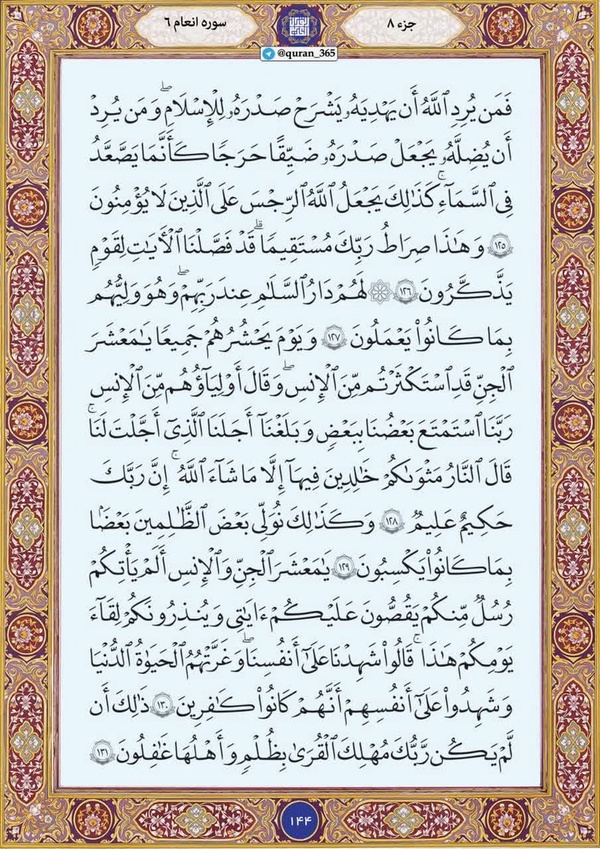 جزء ۸
سوره انعام ۶
@quran_365
فَمَن يُرِدِ ٱللَّهُ أَن يَهْدِيَهُۥ يَشْرَحْ صَدْرَهُۥ لِلْإِسْلَٰمِۖ وَمَن يُرِدْ
أَن يُضِلَّهُۥ يَجْعَلْ صَدْرَهُۥ ضَيِّقًا حَرَجًا كَأَنَّمَا يَصَّعَّدُ
فِى ٱلسَّمَآءِۚ كَذَٰلِكَ يَجْعَلُ ٱللَّهُ ٱلرِّجْسَ عَلَى ٱلَّذِينَ لَا يُؤْمِنُونَ
۝١٢٥ وَهَٰذَا صِرَٰطُ رَبِّكَ مُسْتَقِيمًاۗ قَدْ فَصَّلْنَا ٱلْأَيَٰتِ لِقَوْمٍ
يَذَّكَّرُونَ ۝١٢٦ ۞ لَهُمْ دَارُ ٱلسَّلَٰمِ عِندَ رَبِّهِمْۖ وَهُوَ وَلِيُّهُم
بِمَا كَانُوا۟ يَعْمَلُونَ ۝١٢٧ وَيَوْمَ يَحْشُرُهُمْ جَمِيعًا يَٰمَعْشَرَ
ٱلْجِنِّ قَدِ ٱسْتَكْثَرْتُم مِّنَ ٱلْإِنسِۖ وَقَالَ أَوْلِيَآؤُهُم مِّنَ ٱلْإِنسِ
رَبَّنَا ٱسْتَمْتَعَ بَعْضُنَا بِبَعْضٍ وَبَلَغْنَآ أَجَلَنَا ٱلَّذِىٓ أَجَّلْتَ لَنَاۚ
قَالَ ٱلنَّارُ مَثْوَىٰكُمْ خَٰلِدِينَ فِيهَآ إِلَّا مَا شَآءَ ٱللَّهُۚ إِنَّ رَبَّكَ
حَكِيمٌ عَلِيمٌ ۝١٢٨ وَكَذَٰلِكَ نُوَلِّى بَعْضَ ٱلظَّٰلِمِينَ بَعْضًا
بِمَا كَانُوا۟ يَكْسِبُونَ ۝١٢٩ يَٰمَعْشَرَ ٱلْجِنِّ وَٱلْإِنسِ أَلَمْ يَأْتِكُمْ
رُسُلٌ مِّنكُمْ يَقُصُّونَ عَلَيْكُمْ ءَايَٰتِى وَيُنذِرُونَكُمْ لِقَآءَ
يَوْمِكُمْ هَٰذَاۚ قَالُوا۟ شَهِدْنَا عَلَىٰٓ أَنفُسِنَاۖ وَغَرَّتْهُمُ ٱلْحَيَوٰةُ ٱلدُّنْيَا
وَشَهِدُوا۟ عَلَىٰٓ أَنفُسِهِمْ أَنَّهُمْ كَانُوا۟ كَٰفِرِينَ ۝١٣٠ ذَٰلِكَ أَن
لَّمْ يَكُن رَّبُّكَ مُهْلِكَ ٱلْقُرَىٰ بِظُلْمٍ وَأَهْلُهَا غَٰفِلُونَ ۝١٣١
١٤٤